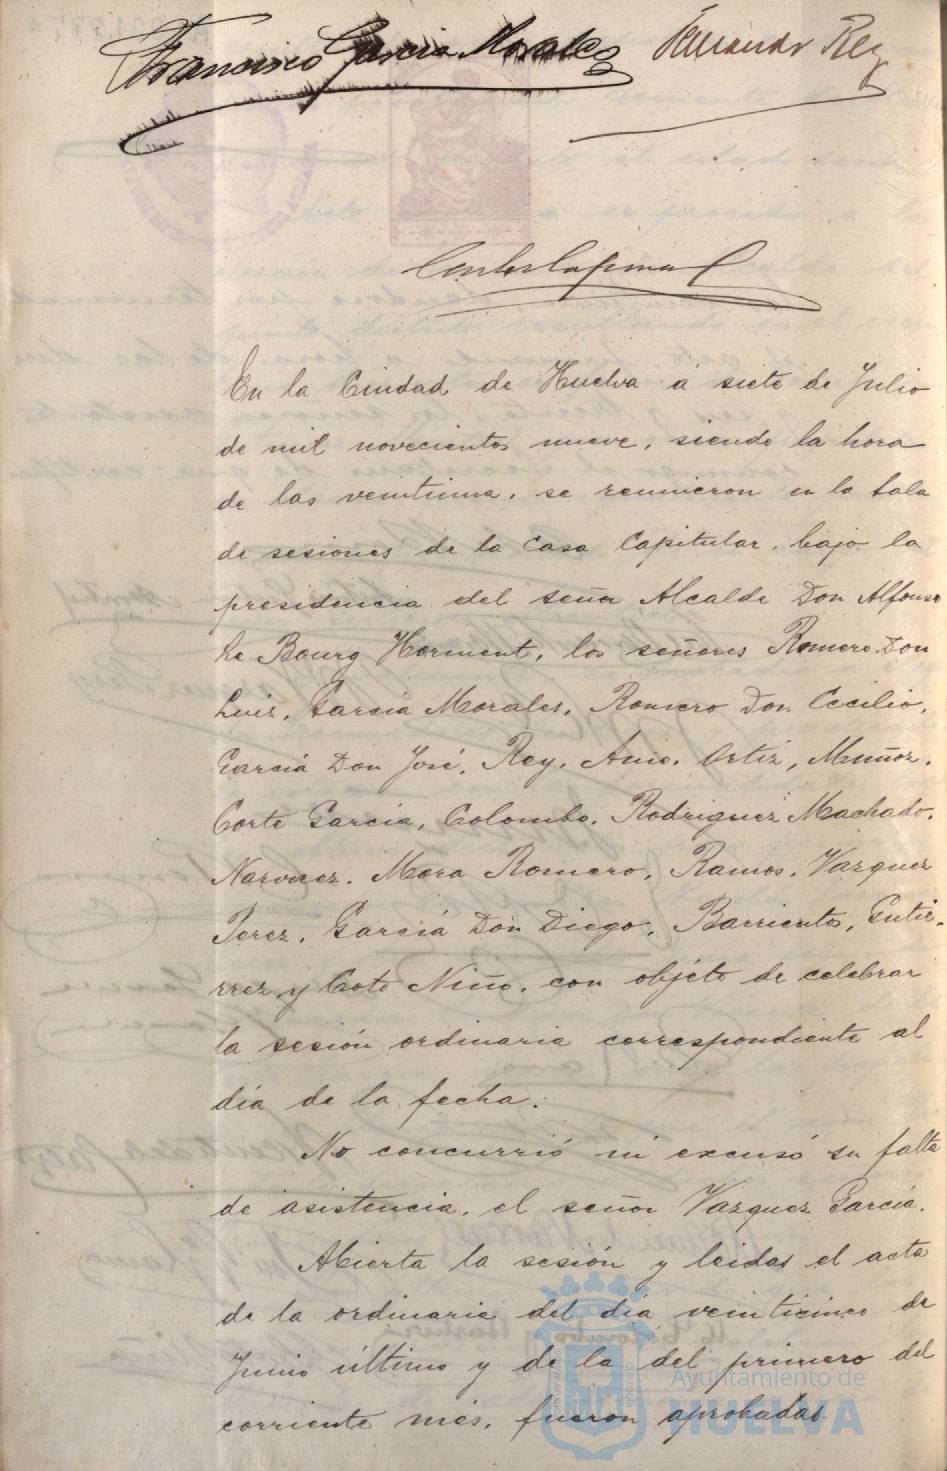 Francisco Garcia Morales Fernando Rey
En la Ciudad de Huelva á siete de Julio
de mil novecientos nueve, siendo la hora
de las veintiuna, se reunieron en la Sala
de sesiones de la Casa Capitular, bajo la
presidencia del señor Alcalde Don Alfonso
Le Bourg Horment, los señores Romero Don
Luis, García Morales, Romero Don Cecilio,
García Don José, Rey, Ortiz, Muñoz,
Corte García, Colombo, Rodriguez Machado,
Narvaez, Mora Romero, Ramos, Vazquez
Perez, García Don Diego, Barrientos, Gutie-
rrez y Coto Niño, con objéto de celebrar
la sesión ordinaria correspondiente al
día de la fecha.
No concurrió ni excusó su falta
de asistencia, el señor Vazquez García.
Abierta la sesión y leidas el acta
de la ordinaria del día veinticinco de
Junio último y de la del primero del
corriente més, fueron aprobadas.
Ayuntamiento de
HUELVA